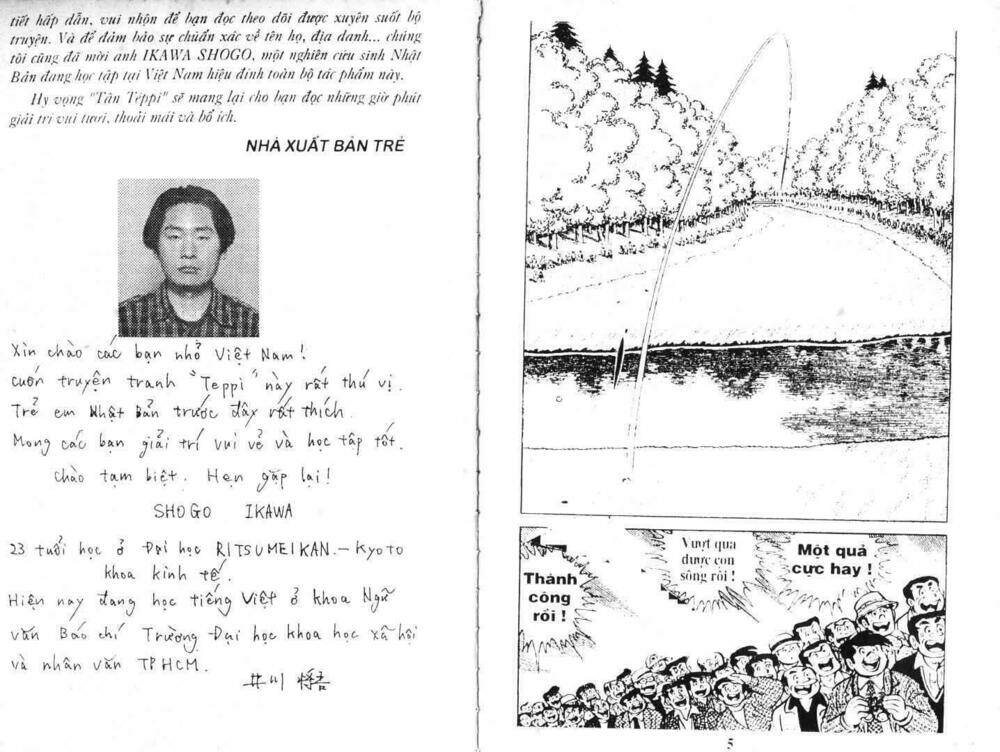 tiết hấp dẫn, vui nhộn để bạn đọc theo dõi được xuyên suốt bộ
truyện. Và để đảm bảo sự chuẩn xác về tên họ, địa danh... chúng
tôi cũng đã mời anh IKAWA SHOGO, một nghiên cứu sinh Nhật
Bản đang học tập tại Việt Nam hiệu đính toàn bộ tác phẩm này.
Hy vọng "Tân Têppi" sẽ mang lại cho bạn đọc những giờ phút
giải trí vui tươi, thoải mái và bổ ích.
NHÀ XUẤT BẢN TRẺ
Xin chào các bạn nhỏ Việt Nam!
cuốn truyện tranh "Teppi" này rất thú vị.
Trẻ em Nhật Bản trước đây rất thích.
Mong các bạn giải trí vui vẻ và học tập tốt.
chào tạm biệt. Hẹn gặp lại!
SHOGO IKAWA
23 tuổi học ở Đại học RITSUMEIKAN.-Kyoto
khoa kinh tế.
Hiện nay đang học tiếng Việt ở khoa Ngữ
văn Báo chí Trường Đại học khoa học xã hội
và nhân văn TPHCM.
井川 将吾
Thành
công
rồi !
Vượt qua
được con
sông rồi !
Một quả
cực hay !
5